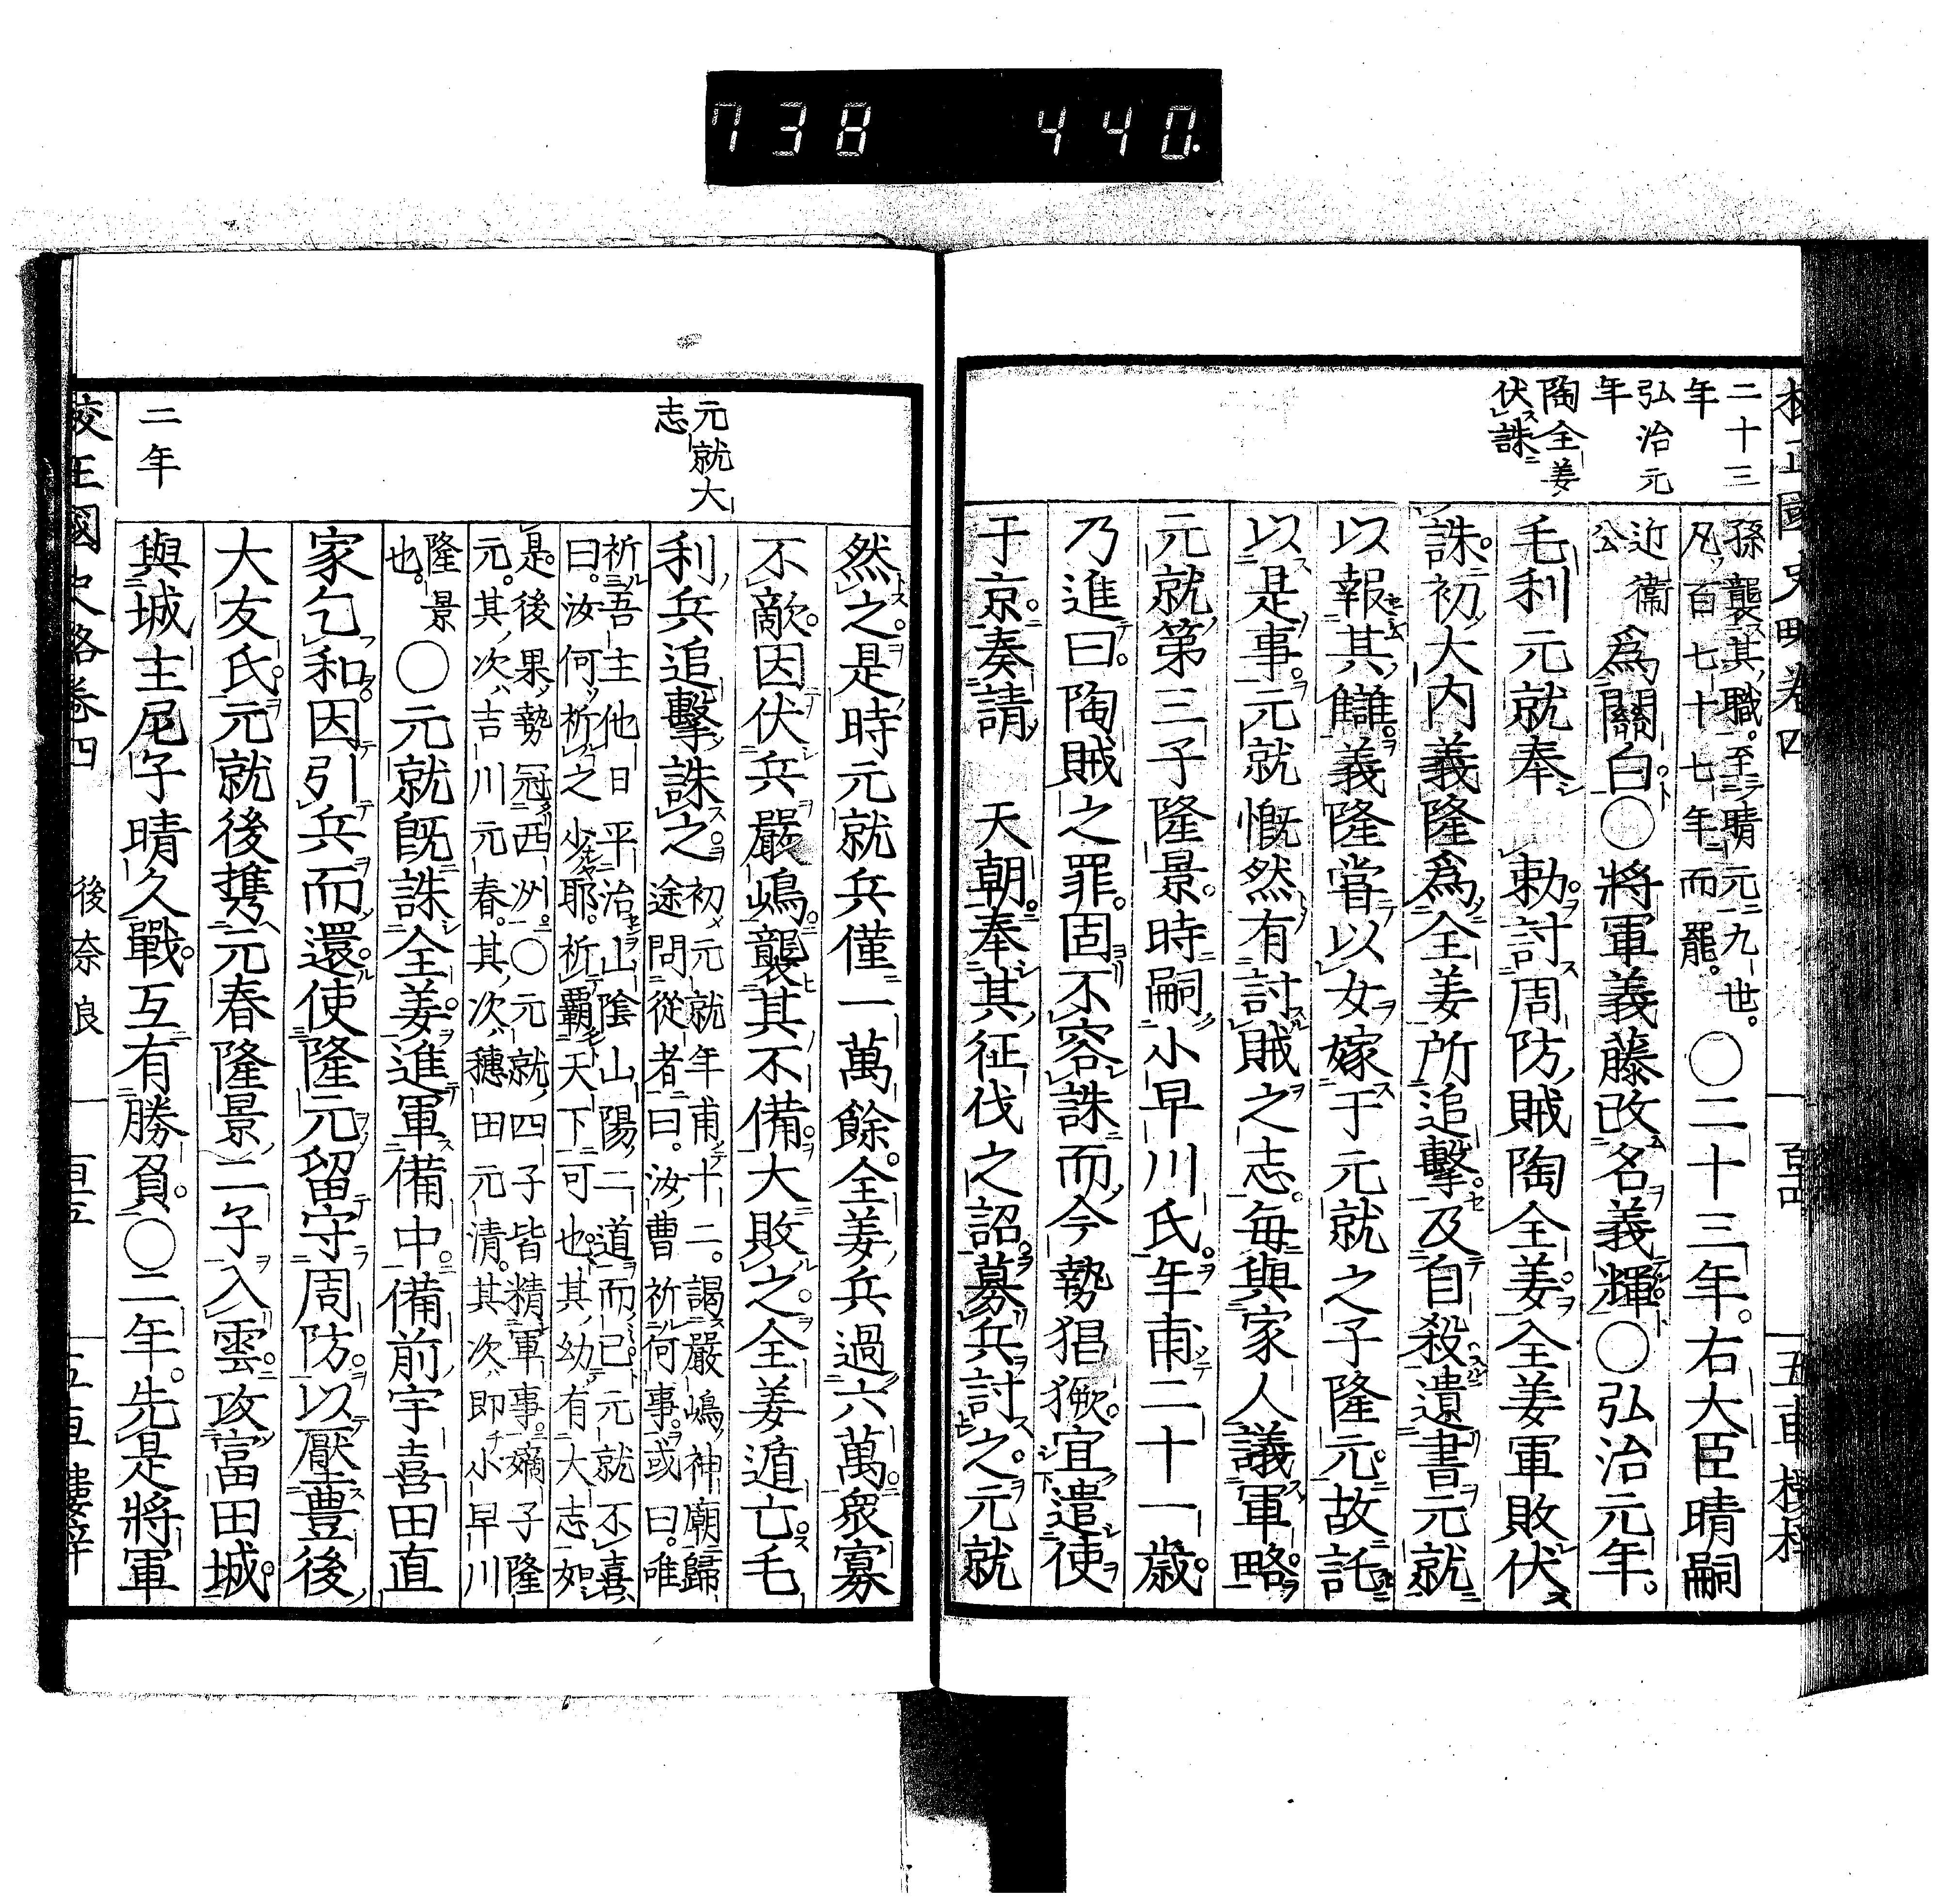 738 440.
校正國史略卷四
五車樓梓
二十三年
弘治元年
陶全姜伏誅
孫襲其職。至晴元九世。
凡百七十七年而罷。
○二十三年。右大臣晴嗣
近衞公
爲關白○將軍義藤改名義輝○弘治元年。
毛利元就奉 勅。討周防賊陶全姜。全姜軍敗伏
誅。初大内義隆爲全姜所追擊。及自殺遺書元就
以報其讎。義隆嘗以女嫁于元就之子隆元。故託
以是事。元就慨然有討賊之志。每與家人議軍略。
元就第三子隆景。時嗣小早川氏。年甫二十一歲。
乃進曰。陶賊之罪。固不容誅而今勢猖獗。宜遣使
于京。奏請 天朝。奉其征伐之詔。募兵討之。元就
元就大志
二年
然之。是時元就兵僅一萬餘。全姜兵過六萬。衆寡
不敵。因伏兵嚴嶋。襲其不備。大敗之。全姜遁亡。毛
利兵追擊誅之。
初元就年甫十二。謁嚴嶋神廟歸
途問從者曰。汝曹祈何事。或曰。唯
祈吾主他日平治山陰山陽二道而已。元就不喜
曰。汝何祈之少耶。祈覇天下可也。其幼有大志如
是。後果勢冠西州。○元就四子皆精軍事。嫡子隆
元。其次吉川元春。其次穗田元清。其次卽小早川
隆景
也。
○元就旣誅全姜。進軍備中。備前宇喜田直
家乞和。因引兵而還。使隆元留守周防。以壓豊後
大友氏。元就後携元春隆景二子入雲。攻富田城。
與城主尼子晴久戰。互有勝負。○二年。先是將軍
校正國史略卷四
後奈良
五車樓梓